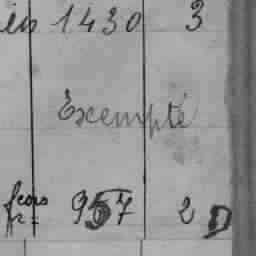 en 1430 3
Exempté
957 2 D